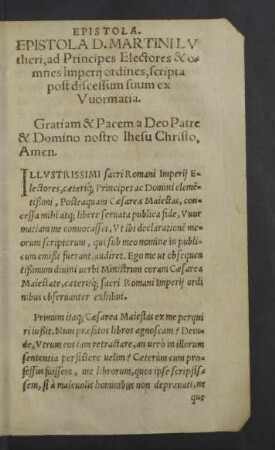 EPISTOLA.
EPISTOLA D. MARTINI LV
theri, ad Principes Electores & o-
mnes Imperij ordines, scripta
post discessum suum ex
Vuormatia.
Gratiam & Pacem a Deo Patre
& Domino nostro Ihesu Christo,
Amen.
ILLVSTRISSIMI sacri Romani Imperij E-
lectores, cæteriq; Principes ac Domini clemē-
tissimi, Posteaquam Cæsarea Maiestas, con-
cessa mihi atq; libere seruata publica fide, Vuor
matiam me conuocasset, Vt ibi declaratione me-
orum scriptorum, qui sub meo nomine in publi-
cum emissi fuerant, audiret. Ego me ut obsequen
tissimum diuini uerbi Ministrum coram Cæsarea
Maiestate, cæterisq; sacri Romani Imperij ordi
nibus obseruanter exhibui.
Primum itaq; Cæsarea Maiestas ex me perqui
ri iussit. Num præfatos libros agnoscam? Dein-
de, Vtrum eos iam retractare, an uerò in illorum
sententia persistere uelim? Cæterùm cum pro-
fessus fuissem, me librorum, quos ipse scripsis-
sem, si à maleuolis hominibus non deprauati, ne
que